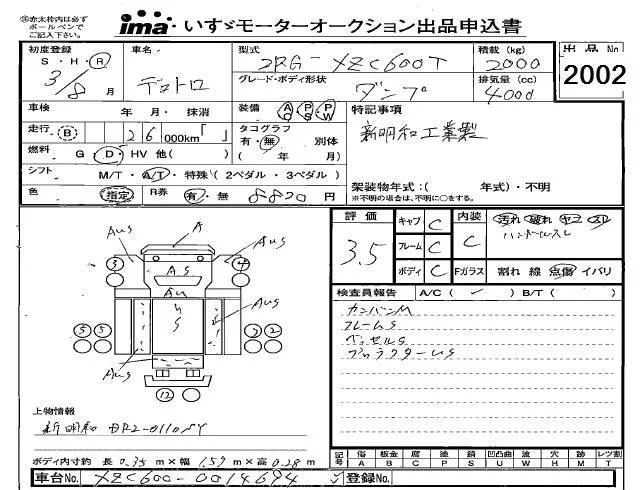 ※赤太枠内は必ず
ボールペンで
ご記入下さい。
ima いすゞモーターオークション出品申込書
初度登録
S・H・R
3/8月
車名
デュトロ
型式
2RG-XZC600T
グレード・ボディ形状
ダンプ
積載(kg)
2000
排気量(cc)
4000
出品No
2002
車検 年 月・ 抹消
走行 B 26 000km「 」
燃料 G・D・HV 他( )
シフト M/T・A/T・特殊(2ペダル・3ペダル)
色 指定 R券 有・無 8820円
装備 AC PS PW
タコグラフ
有・無 別体
( 年 月)
特記事項
新明和工業製
架装物年式:( 年式)・不明
※不明の場合は、不明に○をする。
評価
3.5
キャブ C
フレーム C
ボディ C
内装
C
Fガラス
汚れ 破れ ヤニ スリ
ハンドルスレ
割れ 線 点傷 イバリ
検査員報告 A/C( ✓ ) B/T( )
カンバンM
フレームS
ベッセルS
AUS A AUS
3 AS 4
AU
US
S
AUS
5 5 3 2
AUS AUS
12
上物情報
新明和 DR2-0110SY
ボディ内寸約 長 0.35 m×幅 1.59 m×高 0.28 m
記号 傷 板金 腐 塗 錆 凹凸曲 波 穴 跡 レツ割
A B C P S U W H M T
車台No. XZC600-0014694
登録No.